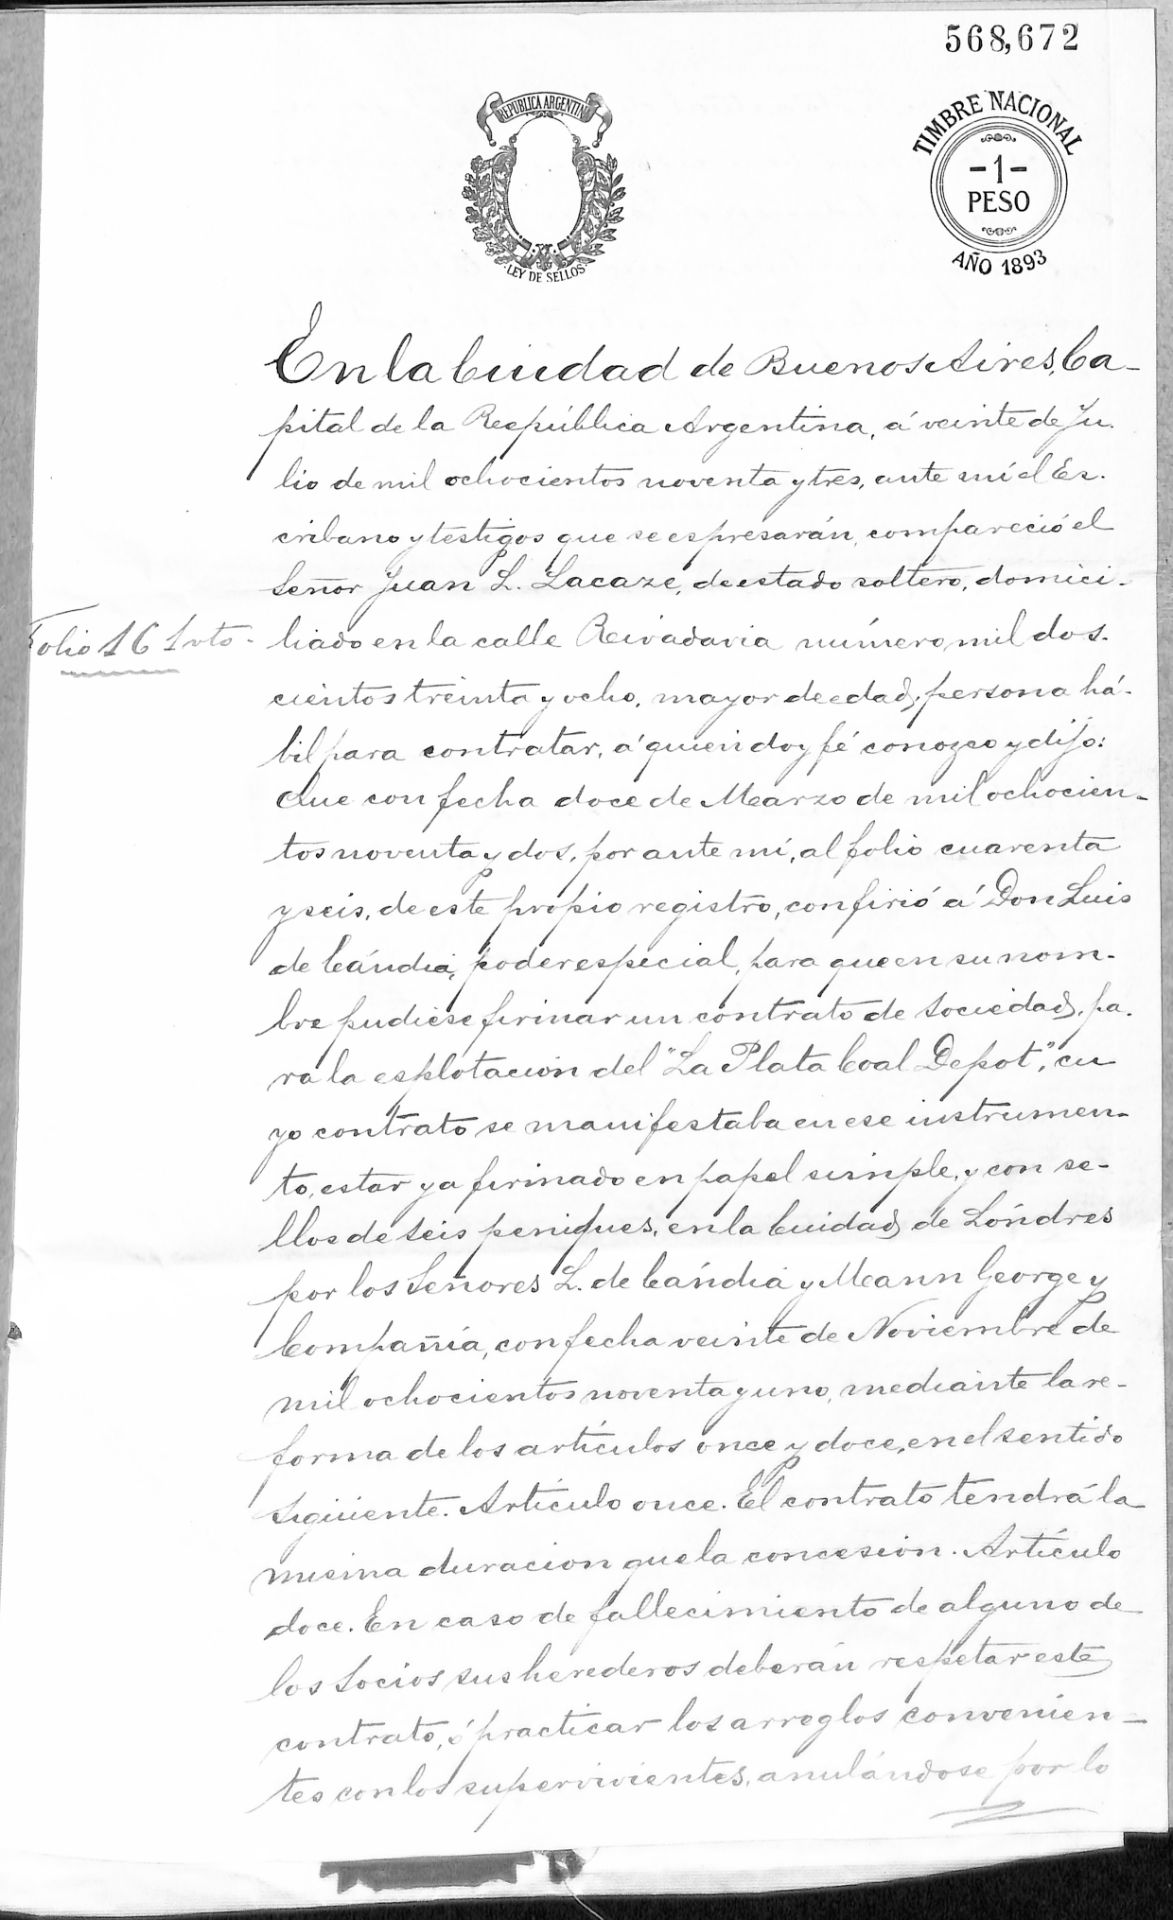 568,672
REPUBLICA ARGENTINA
LEY DE SELLOS
TIMBRE NACIONAL
-1-
PESO
AÑO 1893
En la Ciudad de Buenos Aires, Ca-
pital de la República Argentina, á veinte de Ju-
lio de mil ochocientos noventa y tres, ante mí el Es-
cribano y testigos que se espresarán, compareció el
Señor Juan L. Lacaze, de estado soltero, domici-
Folio 161 vto-
liado en la calle Rivadavia número, mil dos-
cientos treinta y ocho, mayor de edad, persona há-
bil para contratar, á quien doy fé conozco y dijo:
Que con fecha doce de Marzo de mil ochocien-
tos noventa y dos, por ante mi, al folio cuarenta
y seis, de este propio registro, confirió á Don Luis
de Cándia, poder especial, para que en su nom-
bre pudiese firmar un contrato de Sociedad, pa-
ra la esplotacion del "La Plata Coal Depot", cu
yo contrato se manifestaba en ese instrumen-
to, estar ya firmado en papel simple, y con se-
llos de seis peniques, en la Ciudad de Lóndres
por los Señores L. de Cándia y Mann George y
Compañía, con fecha veinte de Noviembre de
mil ochocientos noventa y uno, mediante la re-
forma de los artículos once y doce, en el sentido
siguiente. Artículo once. El contrato tendrá la
misma duracion que la concesion. Artículo
doce. En caso de fallecimiento de alguno de
los Socios sus herederos deberán respetar este
contrato, ó practicar los arreglos convenien-
tes con los supervivientes, anulándose por lo